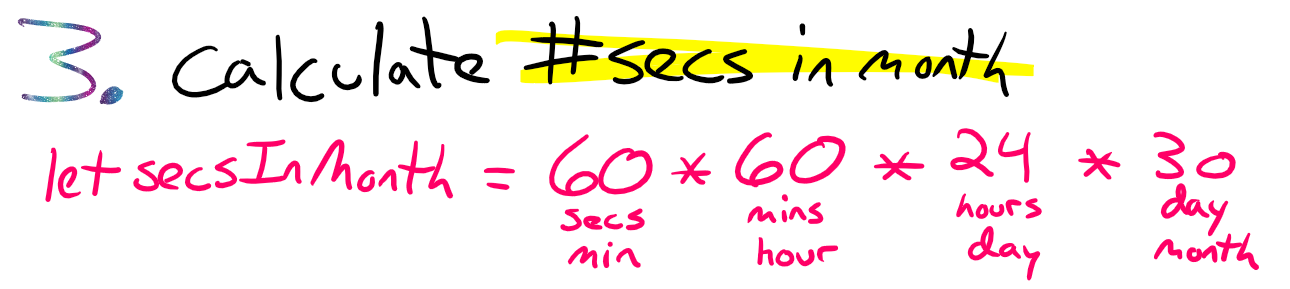 3. Calculate #secs in month
let secsInMonth = 60 * 60 * 24 * 30
secs mins hours day
min hour day month